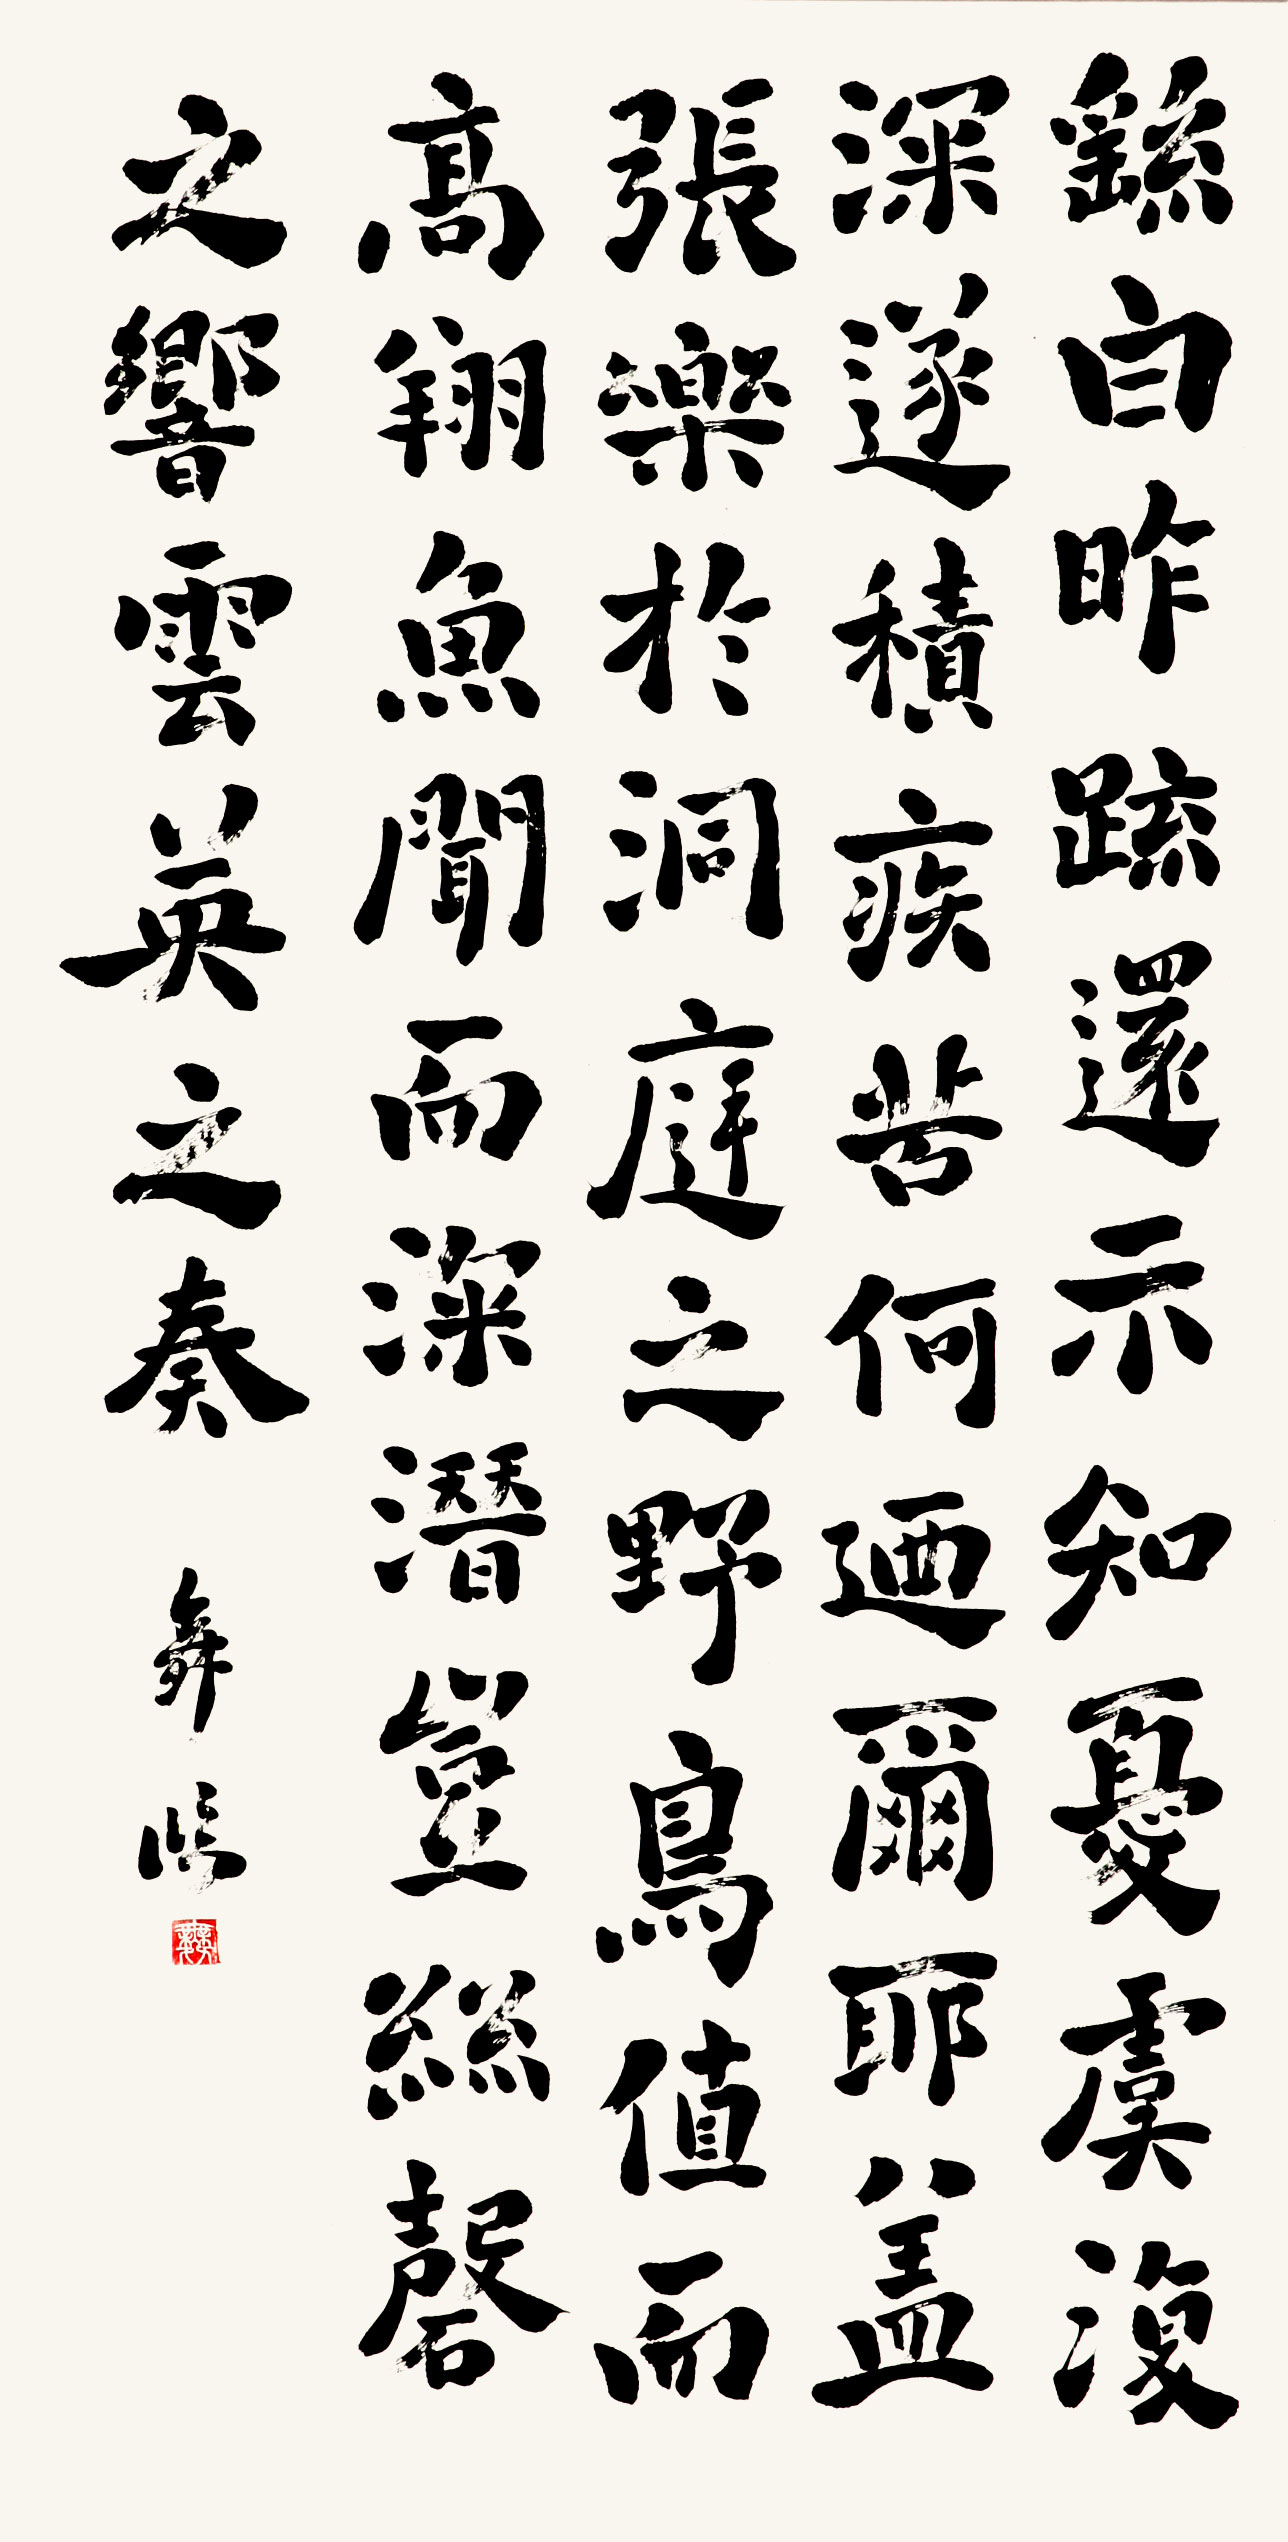 繇白昨疏還示知憂虞復
深遂積疾苦何迺爾耶盖
張樂於洞庭之野鳥值而
高翔魚聞而深潛豈絲磬
之響雲英之奏
舞臨